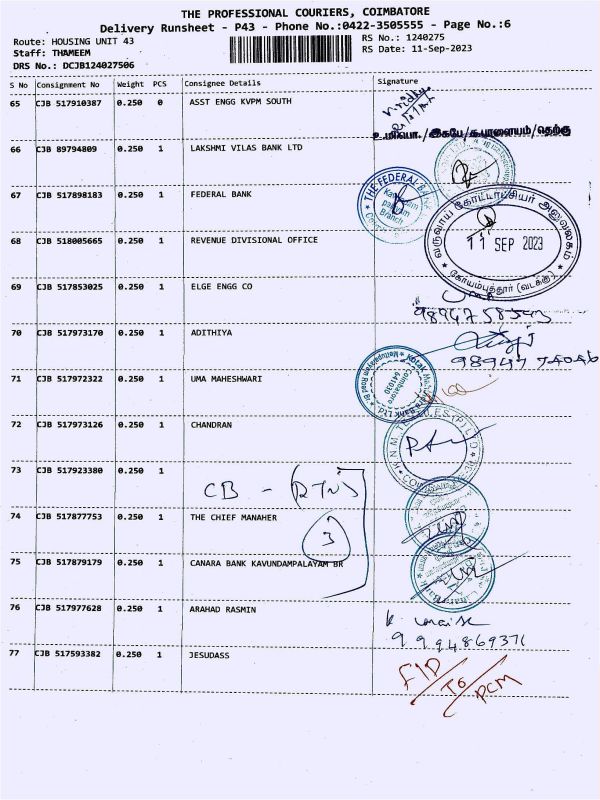 THE PROFESSIONAL COURIERS, COIMBATORE
Delivery Runsheet - P43 - Phone No.:0422-3505555 - Page No.:6
Route: HOUSING UNIT 43
RS No.: 1240275
Staff: THAMEEM
RS Date: 11-Sep-2023
DRS No.: DCJB124027506
S No Consignment No Weight PCS Consignee Details Signature
65 CJB 517910387 0.250 0 ASST ENGG KVPM SOUTH
66 CJB 89794809 0.250 1 LAKSHMI VILAS BANK LTD
67 CJB 517898183 0.250 1 FEDERAL BANK
THE FEDERAL BANK
Branch
68 CJB 518005665 0.250 1 REVENUE DIVISIONAL OFFICE
வருவாய் கோட்டாட்சியர் அலுவலகம்
11 SEP 2023
கோயம்புத்தூர் (வடக்கு)
69 CJB 517853025 0.250 1 ELGE ENGG CO
70 CJB 517973170 0.250 1 ADITHIYA
71 CJB 517972322 0.250 1 UMA MAHESHWARI
Coimbatore
641030
72 CJB 517973126 0.250 1 CHANDRAN
73 CJB 517923380 0.250 1
CB - (RTN)
3
74 CJB 517877753 0.250 1 THE CHIEF MANAHER
75 CJB 517879179 0.250 1 CANARA BANK KAVUNDAMPALAYAM BR
76 CJB 517977628 0.250 1 ARAHAD RASMIN
9994869371
77 CJB 517593382 0.250 1 JESUDASS
F1D/TO/PCM